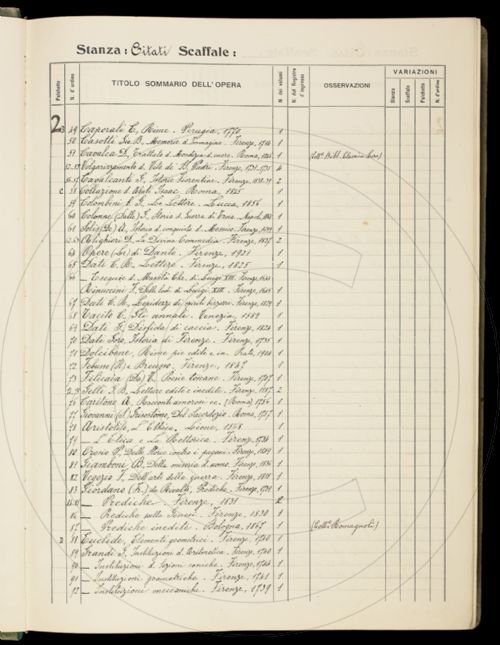 Stanza: Citati Scaffale:
Palchetto N. d'ordine TITOLO SOMMARIO DELL'OPERA N. dei volumi N. del Registro d'ingresso OSSERVAZIONI VARIAZIONI Stanza Scaffale Palchetto N. d'ordine
2 49 Caporali C, Rime. Perugia, 1770 1
50 Casotti Gio B, Memorie d. Immagine. Firenze, 1714 1
51 Cavalca D, Trattato d. Mondizia d. cuore. Roma, 1846 1
Volgarizzamento d. Vite de' SS. Padri. Firenze, 1731-1735
Cavalcanti G, Istorie Fiorentine. Firenze, 1838-39 2
C 58 Collazione d. Abate Isaac. Roma, 1845 1
59 Colombini G. Le Lettere. Lucca, 1856 1
60 Colonne (Delle) G, Storia d. Guerra di Troia. 1
61 Solis (De) A, Istoria d. conquista d. Messico. Firenze, 1699 1
Alighieri D, La Divina Commedia. Firenze, 1837 2
64 Opere (Le) di Dante. Firenze, 1921 1
65 Dati C. R. Lettere. Firenze, 1825 1
66 — Esequie d. Maestà Cris. di Luigi XIII. Firenze, 1644
Rinuccini, Delle lodi di Luigi XIII. Firenze, 1645 1
67 Dati C. R, Lepidezze di spiriti bizzarri. Firenze, 1829 1
68 Tacito C, Gli annali. Venezia, 1582 1
69 Dati G, Disfida di caccia. Firenze, 1824 1
70 Dati Goro, Istoria di Firenze. Firenze, 1735 1
71 Dolcibene, Rime più edite e in. Prato, 1904 1
72 Firenze, 1867 1
73 Filicaia (Da) V, Poesie toscane. Firenze, 1707 1
Gelli Lettere edite e inedite. Firenze, 2
76 Caritone A, Racconti amorosi ec. (Roma) 1756 1
77 Giovanni (S) Grisostomo, Del Sacerdozio. Roma, 1757 1
78 Aristotile, L'Ethica. Lione, 1568 1
79 — L'Etica e La Rettorica. Firenze, 1734 1
80 Orosio P, Delle Storie contro i pagani. Firenze, 1849 1
81 Giamboni B, Della miseria d. uomo. Firenze, 1836 1
82 Vegezio F, Dell'arte della guerra. Firenze, 1815 1
83 Giordano (F.) da Rivalto, Prediche. Firenze, 1739 1
— Prediche. Firenze, 1831 2
86 — Prediche sulla Genesi. Firenze, 1830 1
87 — Prediche inedite. Bologna, 1867 1 (Coll.ª Romagnoli)
D 88 Euclide, Elementi geometrici. Firenze, 1740 1
89 Grandi G, Instituzioni d. Aritmetica. Firenze, 1740 1
90 — Instituzioni d. sezioni coniche. Firenze, 1744 1
91 — Instituzioni geometriche. Firenze, 1741 1
92 — Instituzioni meccaniche. Firenze, 1739 1